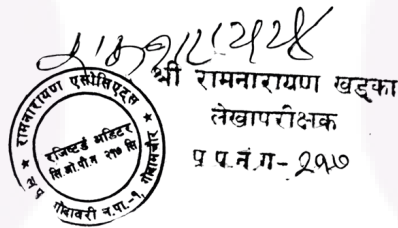 श्री रामनारायण खड्का
लेखापरीक्षक
प्र.प.नं.ग- २१७
रामनारायण एसोसिएट्स
रजिष्टर्ड अडिटर
सि.ओ.पी.नं २१७ सि
गोदावरी न.पा.-१,